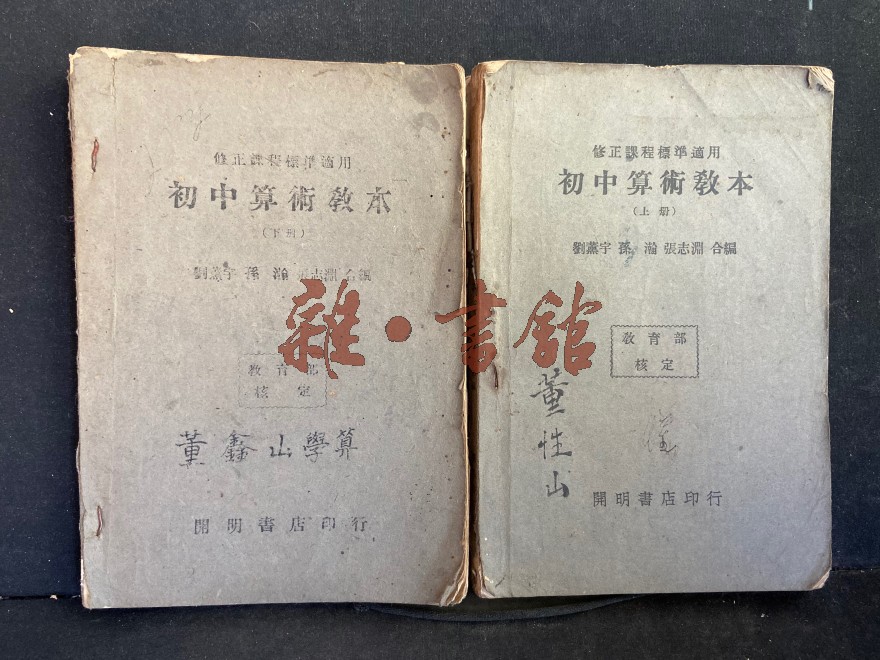 修正課程標準適用
初中算術教本
（下册）
劉薰宇 孫 瀚 張志淵 合編
教育部
核定
董鑫山學算
開明書店印行
修正課程標準適用
初中算術教本
（上册）
劉薰宇 孫 瀚 張志淵 合編
教育部
核定
董性山
開明書店印行
雜·書館